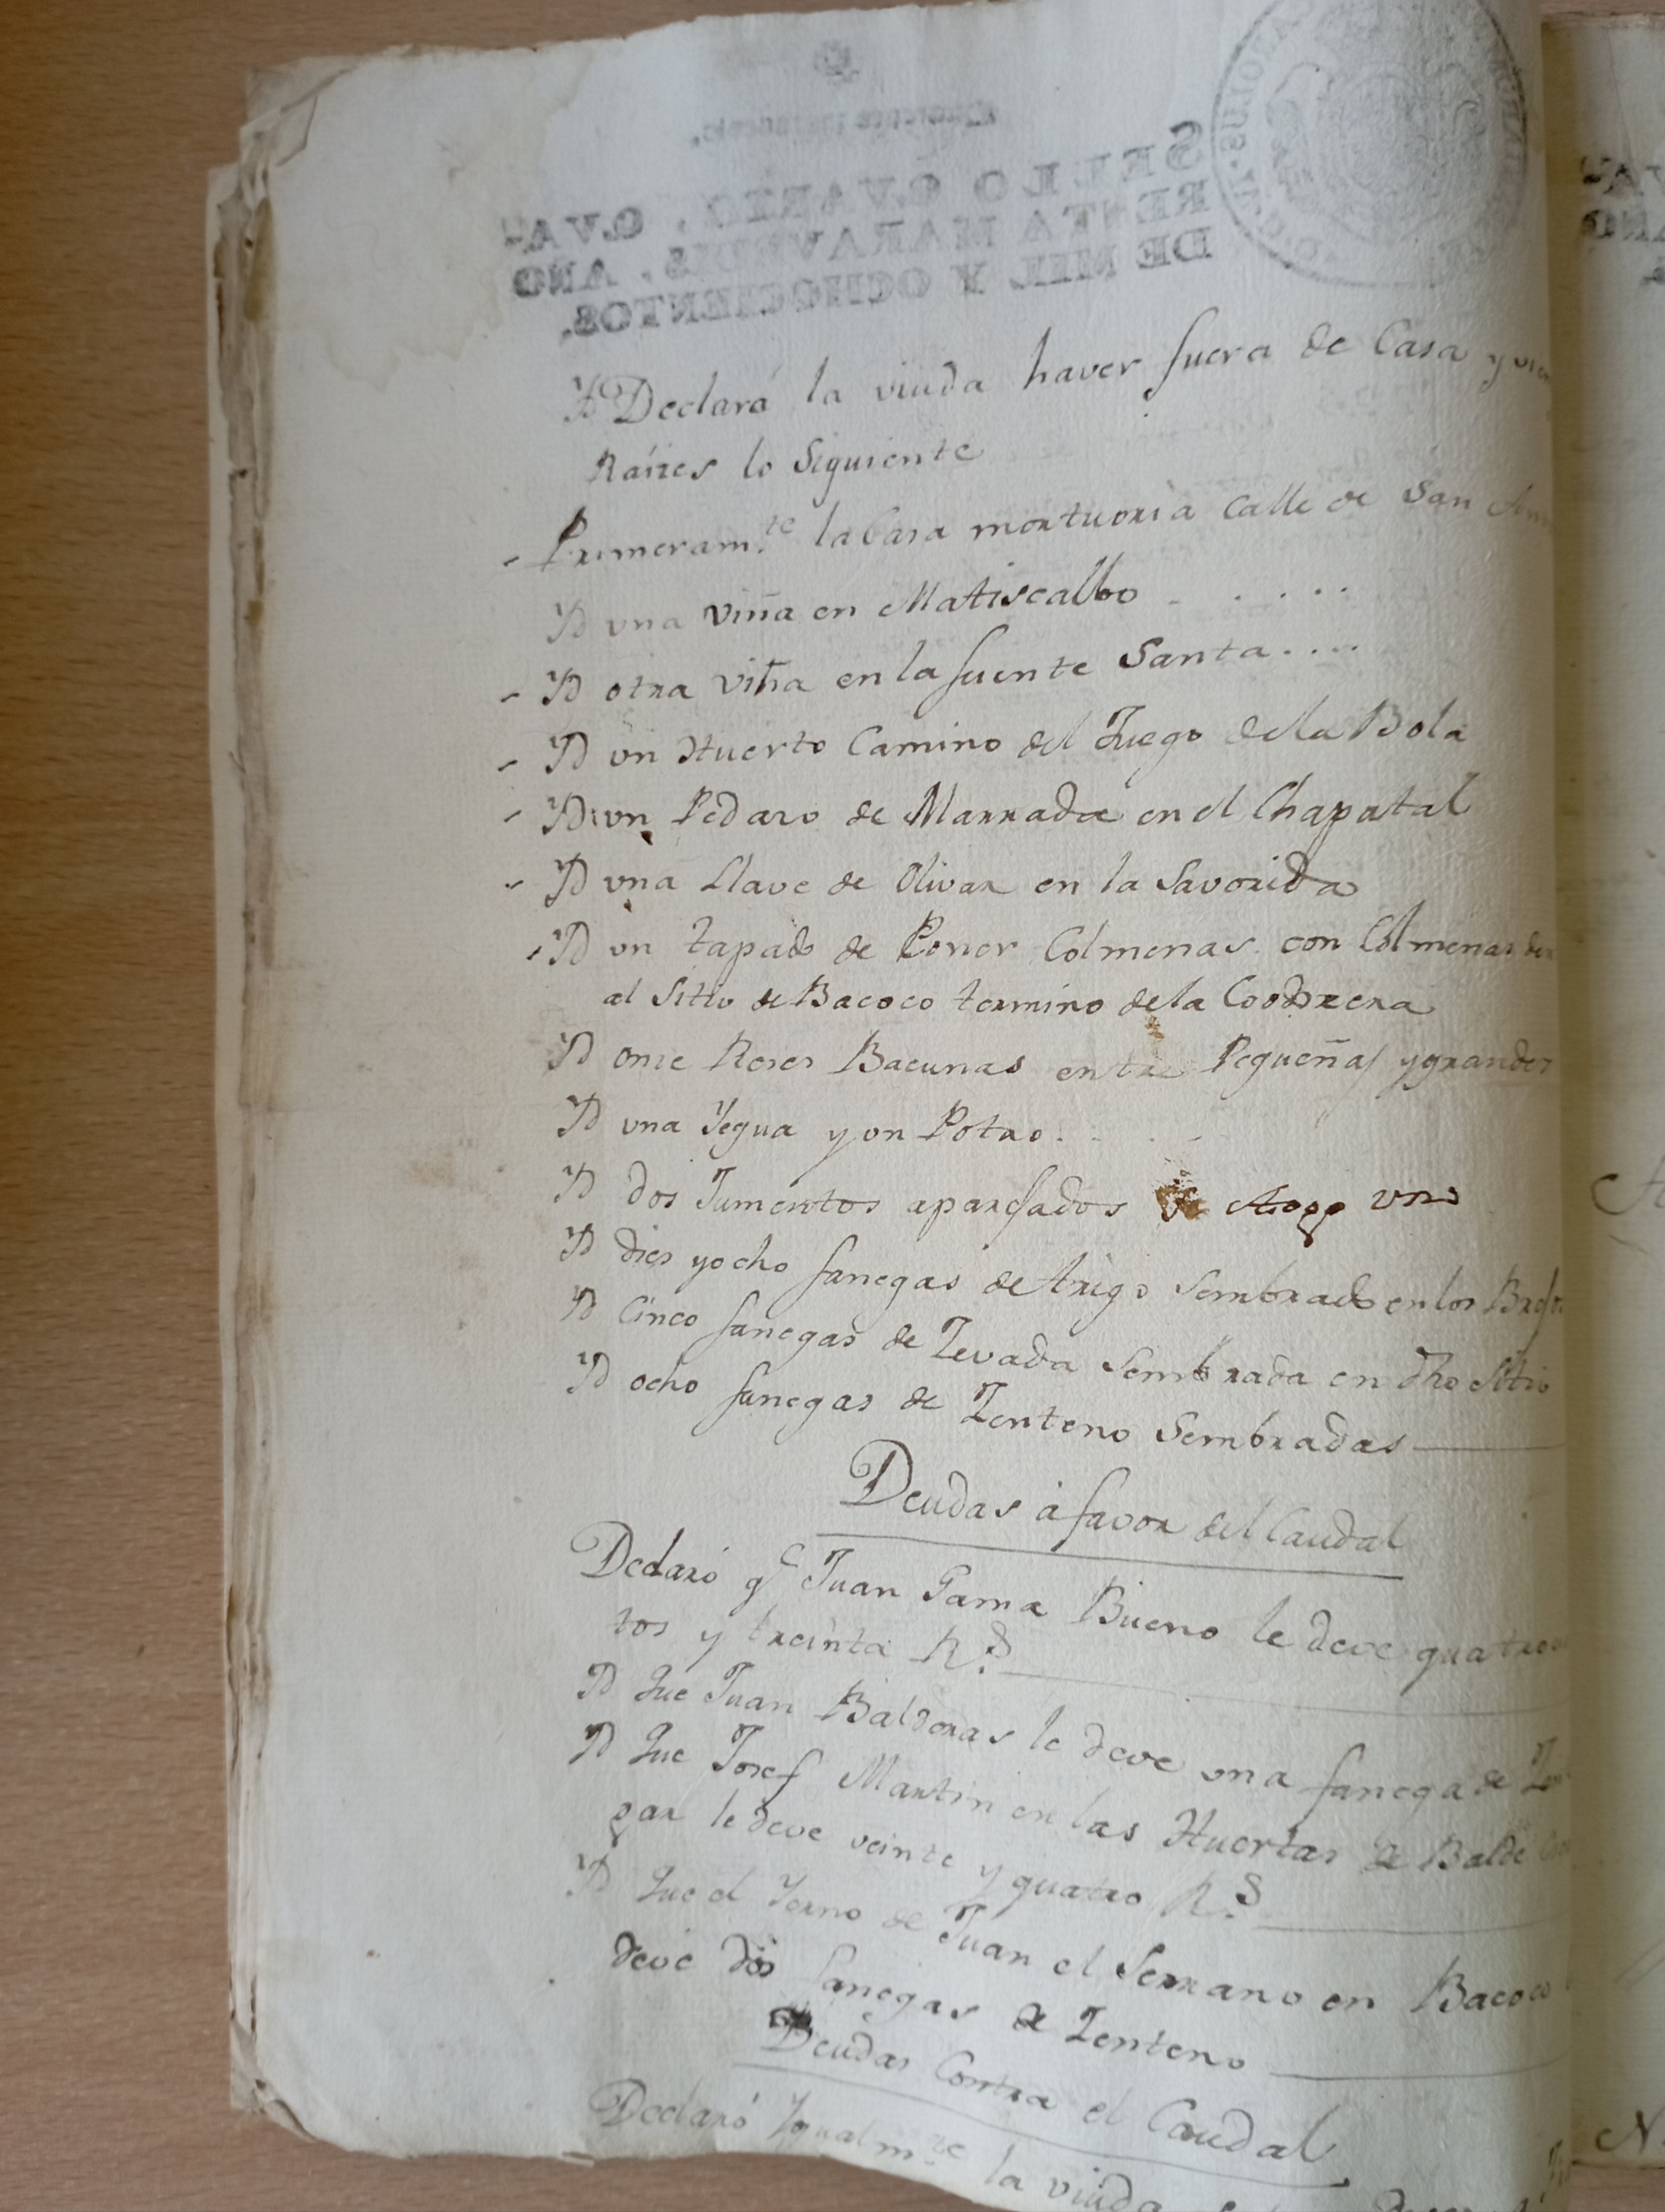 SELLO QVARTO, QVA-
RENTA MARAVEDIS, AÑO
DE MIL Y OCHOCIENTOS.
Yd Declaró la viuda haver fuera de Casa y
Raizes lo Siguiente
Primeram.te la Casa mortuoria Calle de San
Yd vna viña en Matiscalbo . . . . .
Yd otra viña en la fuente Santa . . . .
Yd vn Huerto Camino del Juego dela Bola
Yd vn Pedazo de Marrada en el Chapatal
Yd vna Llave de Olivar en la Savorida
Yd vn tapado de Poner Colmenas con Colmenas
al Sitio de Bacoco termino dela Coodrera
Yd onze Reses Bacunas entre Pequeñas y grandes
Yd vna Yegua y vn Potro . . . .
Yd dos Jumentos aparejados
Yd dies y ocho fanegas de trigo Sembrado en los
Yd Cinco fanegas de Zevada Sembrada en dho Sitio
Yd ocho fanegas de Zenteno Sembradas
Deudas á favor del Caudal
Declaró q.e Juan Gama Bueno le deve
tos y treinta R.s
Yd Que Juan Balderas le deve vna fanega de
Yd Que Josef Martin en las Huertas de Balde
gar le deve veinte y quatro R.s
Yd Que el Yerno de Juan el Serrano en Bacoco
deve dos fanegas de Zenteno
Deudas Contra el Caudal
Declaró Ygualm.te la viuda